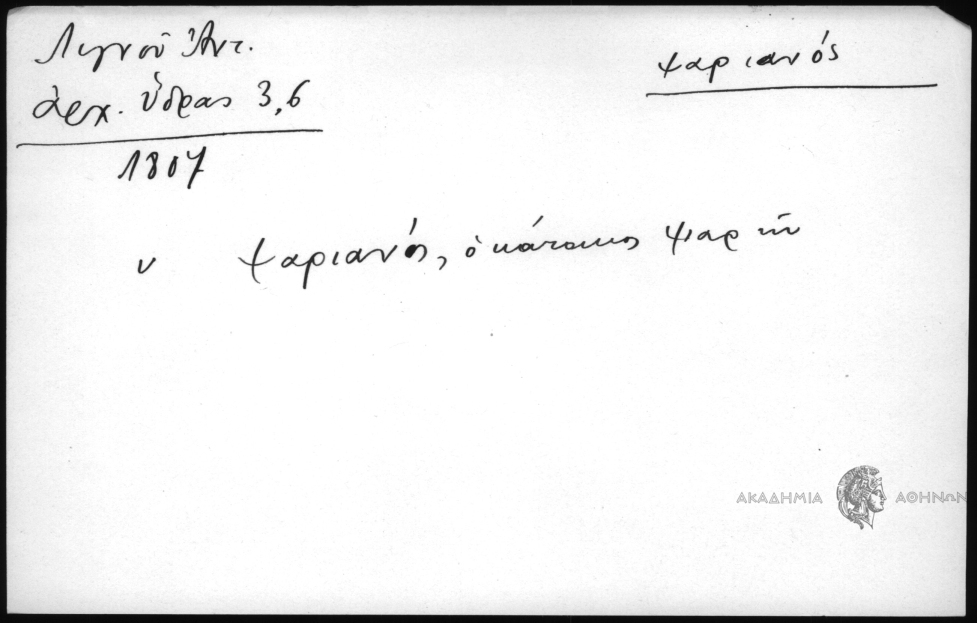 Λιγνοῦ Ἀντ.
ἀρχ. Ὕδρας 3,6
1807
ψαριανός
ν ψαριανός, ὁ κάτοικος Ψαρῶν
ΑΚΑΔΗΜΙΑ ΑΘΗΝΩΝ